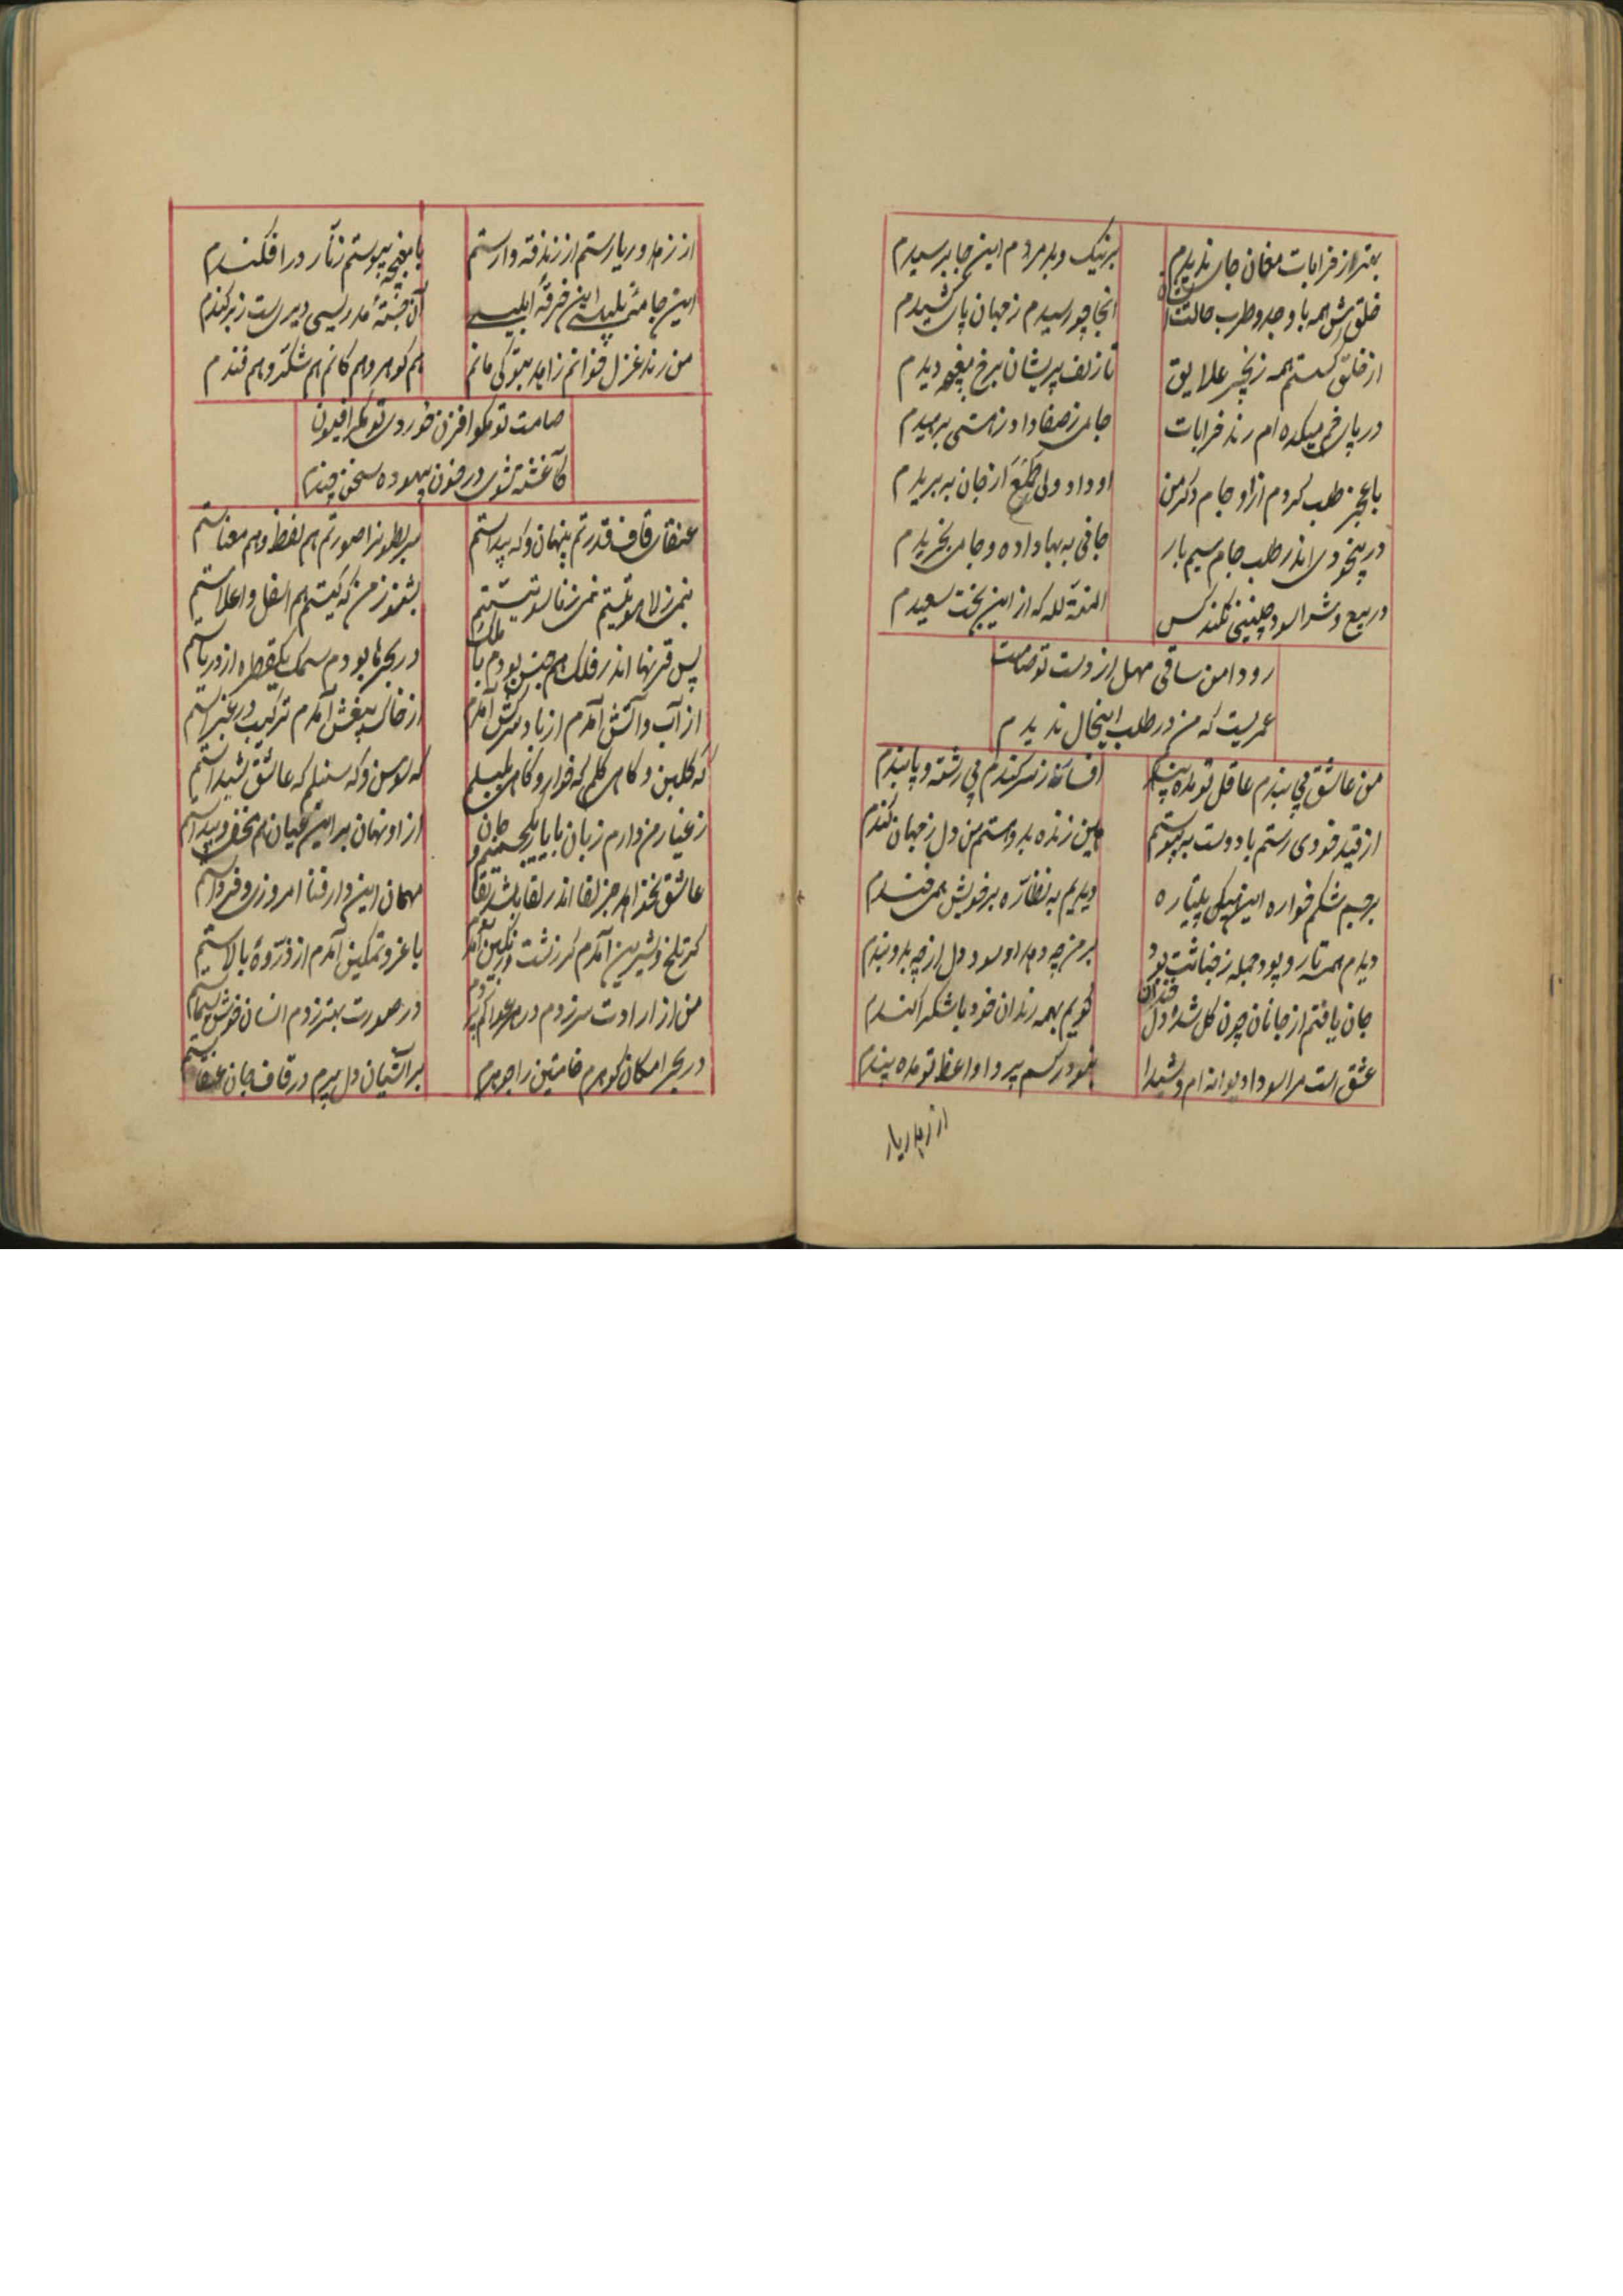 بهتر از خرابات مغان جای ندیدم
بر نیک و بد مردم این جا برسیدم
خلقش همه با وجد و طرب حالت
آنجا چو رسیدم ز جهان پای کشیدم
از خلق گسستم همه زنجیر علایق
تا زلف پریشان برخ مغبچه دیدم
در پای خم میکده ام رند خرابات
جامی ز صفا داد ز هستی برمیدم
با عجز طلب کردم از او جام دگر من
او داد ولی طمع از جان ببریدم
در بیخودی اندر طلب جام سیم بار
جانی به بها داده و جامی بخریدم
در بیع و شرا سود چنینی نکند کس
المنة لله که از این بخت سعیدم
رو دامن ساقی مهل از دست تو صامت
عمریست که من در طلب اینحال ندیدم
من عاشق بی بندم عاقل تو مده پندم
افسانه ز سر کندم بی رشته و پابندم
از قید خودی رستم با دوست بپیوستم
بین زنده بد و هستم من دل ز جهان کندم
بر جسم شکم خواره این پتیاره
دیدیم به نظاره بر خویش همی خندم
دیدم همه تار و پود جمله ز خباثت بود
بر من چه دهد او سود دل از چه بدو بندم
جان یافتم از جانان چون گل شده دل خندان
گویم بهمه رندان خود با شکر اکندم
عشق است مرا سودا دیوانه ام و شیدا
بنمود رسم پروا واعظ تو مده پندم
از زهد ریا
از زهد و ریا رستم از زندقه وارستم
با مغبچه پیوستم زنار در افکندم
این جامه تلبیسی این خرقه ابلیسی
آن جبّهٔ تدریسی دیریست ز بر کندم
من رند غزل خوانم زاهد بتو کی مانم
هم گوهر و هم کانم هم شکر و هم قندم
صامت تو مگو افزون خوردی تو مگر افیون
کآغشته شوی در خون بیهوده سخن چندم
عنقای قاف قدرتم پنهان و که پیداستم
سر بطون را صورتم هم لفظ و هم معناستم
بشنو ز من که کیستم هم اسفل و اعلاستم
پس قرنها اندر فلک هم جنس بودم با ملک
در بحرها بودم سمک یکقطره از دریاستم
از آب و آتش آمدم از باد سرکش آمدم
از خاک بیغش آمدم ترکیب در غبراستم
که گلبن و گاهی گلم که خوار و گاهی بلبلم
که سوسن و که سنبلم که عاشق شیداستم
از او نهان بر این عیان هم مخفی و پیداستم
عاشق نخواهد جز لقا اندر لقا باشد بقا
مهمان این دار فنا امروزی و فرداستم
گر تلخ و شیرین آمدم گر زشت و رنگین آمدم
با عز و تمکین آمدم از ذروهٔ بالاستم
در صورت بهتر زدم انسان خوش سیماستم
در بحر امکان گوهرم خامشین را جوهرم
بر آشیان دل پرم در قاف جان عنقاستم